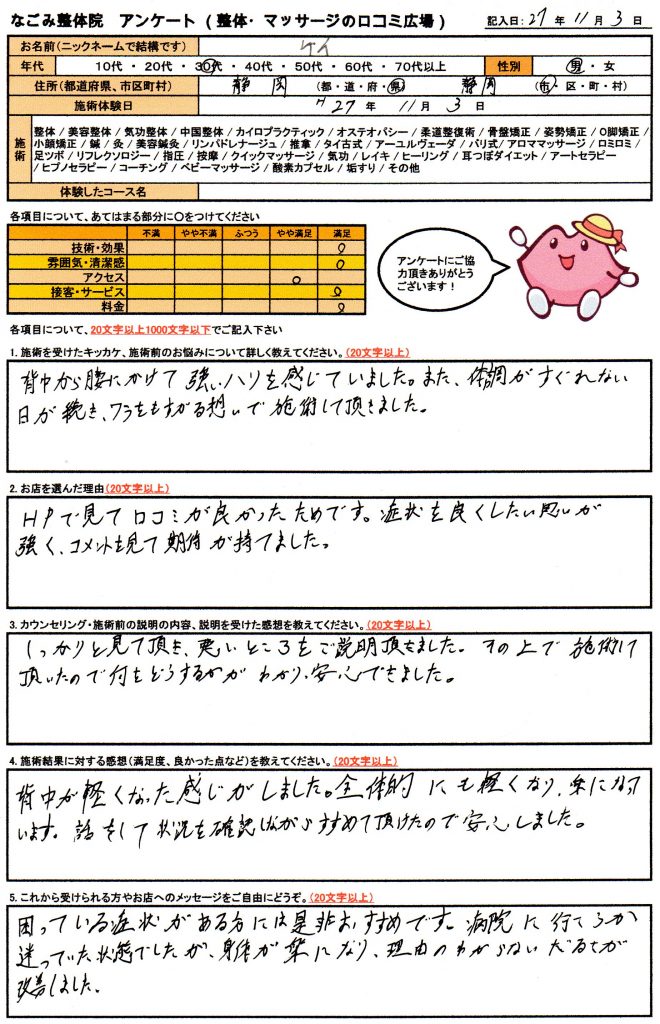 なごみ整体院 アンケート (整体・マッサージの口コミ広場) 記入日:27年11月3日
お名前(ニックネームで結構です) ケイ
年代 10代・20代・30代・40代・50代・60代・70代以上 性別 男・女
住所(都道府県、市区町村) 静岡 (都・道・府・県) 静岡 (市・区・町・村)
施術体験日 H27年11月3日
施術
整体 / 美容整体 / 気功整体 / 中国整体 / カイロプラクティック / オステオパシー / 柔道整復術 / 骨盤矯正 / 姿勢矯正 / O脚矯正 /
小顔矯正 / 鍼 / 灸 / 美容鍼灸 / リンパドレナージュ / 推拿 / タイ古式 / アーユルヴェーダ / バリ式 / アロママッサージ / ロミロミ /
足ツボ / リフレクソロジー / 指圧 / 按摩 / クイックマッサージ / 気功 / レイキ / ヒーリング / 耳つぼダイエット / アートセラピー
/ ヒプノセラピー / コーチング / ベビーマッサージ / 酸素カプセル / 垢すり / その他
体験したコース名
各項目について、あてはまる部分に○をつけてください
不満 やや不満 ふつう やや満足 満足
技術・効果 ○
雰囲気・清潔感 ○
アクセス ○
接客・サービス ○
料金 ○
アンケートにご協
力頂きありがとう
ございます!
各項目について、20文字以上1000文字以下でご記入下さい
1.施術を受けたキッカケ、施術前のお悩みについて詳しく教えてください。(20文字以上)
背中から腰にかけて強いハリを感じていました。また、体調がすぐれない
日が続き、ワラをもすがる想いで施術して頂きました。
2.お店を選んだ理由(20文字以上)
HPで見て口コミが良かったためです。症状を良くしたい思いが
強く、コメントを見て期待が持てました。
3.カウンセリング・施術前の説明の内容、説明を受けた感想を教えてください。(20文字以上)
しっかりと見て頂き、悪いところをご説明頂きました。その上で施術して
頂いたので何をどうするかがわかり、安心できました。
4.施術結果に対する感想(満足度、良かった点など)を教えてください。(20文字以上)
背中が軽くなった感じがしました。全体的にも軽くなり、楽になって
います。話をして状況を確認しながらすすめて頂けたので安心しました。
5.これから受けられる方やお店へのメッセージをご自由にどうぞ。(20文字以上)
困っている症状がある方には是非おすすめです。病院に行こうか
迷っていた状態でしたが、身体が楽になり、理由のわからないだるさが
改善しました。